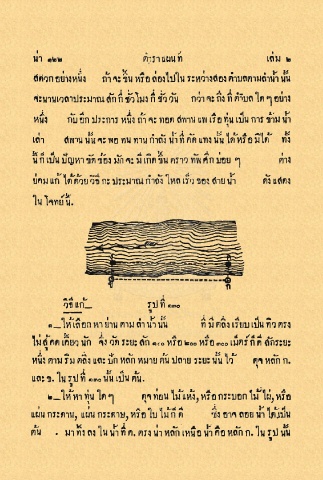 น่า ๑๒๒ ตำราแผนที่ เล่ม ๒
สดวกอย่างหนึ่ง ถ้าจะขึ้นหรือล่องไปในระหว่างสองตำบลตามลำน้ำนั้น
จะนานเวลาประมาณสักกี่ชั่วโมงกี่ชั่ววัน กว่าจะถึงที่ตำบลใดๆอย่าง
หนึ่ง กับอีกประการหนึ่งถ้าจะทอดสพานแพเรือทุ่นเป็นการข้ามน้ำ
เล่า สพานนั้นจะพอทนทานกำลังน้ำที่คิดแทงนั้นได้หรือมิได้ ทั้ง
นี้ก็เป็นปัญหาขัดข้องมักจะมีเกิดขึ้นคราวทัพศึกบ่อยๆ ต่าง
ย่อมแก้ได้ด้วยวิธีกะประมาณกำลังไหลเร็วของสายน้ำ ดังแสดง
ในโจทย์นี้.
วิธีแก้— รูปที่ ๑๓๐
๑—ให้เลือกหาย่านตามลำน้ำนั้น ที่มีตลิ่งเรียบเป็นทิวตรง
ไม่สู้คดเคี้ยวนัก ซึ่งวัดระยะสัก ๑๐ หรือ ๒๐๐ หรือ ๓๐๐ เม็ตร์ก็ดีสักระยะ
หนึ่งตามริมตลิ่งและปักหลักหมายต้นปลายระยะนั้นไว้ ดุจหลัก ก.
และ ข. ในรูปที่ ๑๓๐ นั้นเป็นต้น.
๒—ให้หาทุ่นใดๆ ดุจท่อนไม้แห้ง, หรือกระบอกไม้ไผ่, หรือ
แผ่นกระดาน, แผ่นกระดาษ, หรือใบไม้ก็ดี ซึ่งอาจลอยน้ำได้เป็น
ต้น . มาทิ้งลงในน้ำที่ ค. ตรงน่าหลักเหนือน้ำคือหลัก ก. ในรูปนั้น